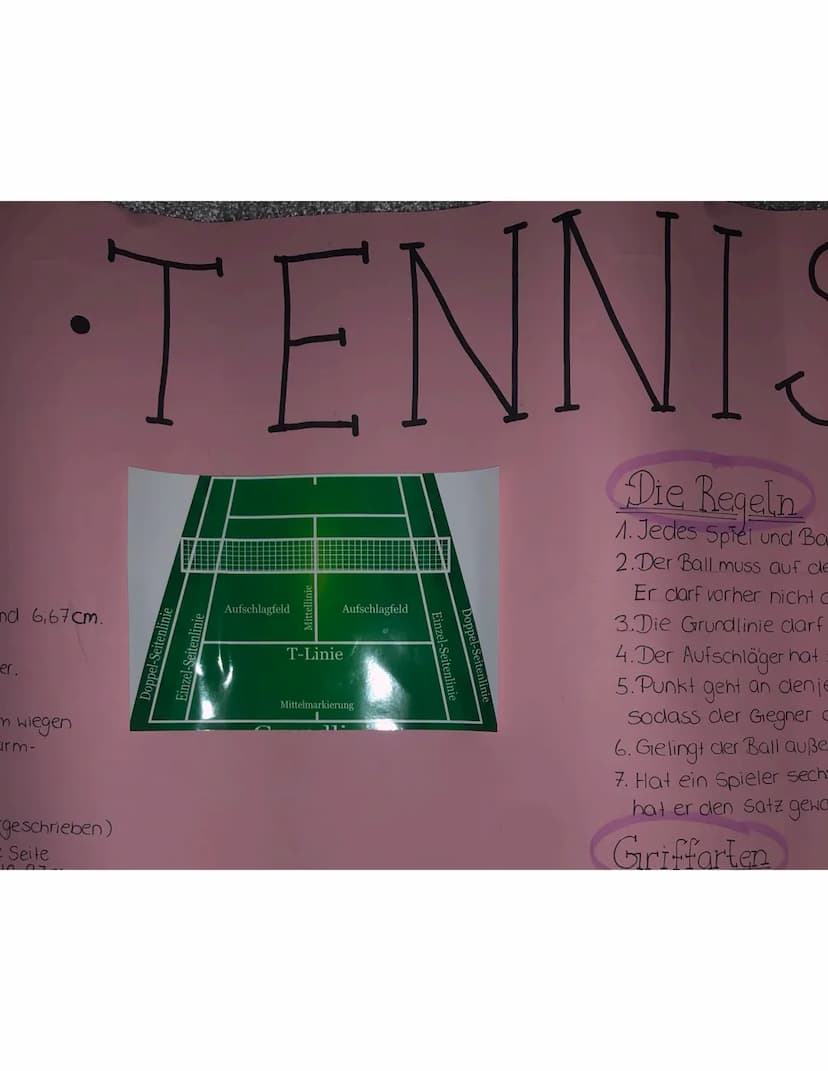 • TENNIS
nd 6,67cm.
er.
m wiegen
arm-
geschrieben)
Seite
Aufschlagfeld
Mittellinie
Aufschlagfeld
Doppel-Seitenlinie
Einzel-Seitenlinie
Einzel-Seitenlinie
Doppel-Seitenlinie
T-Linie
Mittelmarkierung
Die Regeln
1. Jedes Spiel und Ba
2. Der Ball muss auf de
Er darf vorher nicht
3. Die Grundlinie darf
4. Der Aufschläger hat
5. Punkt geht an denje
sodass der Gegner
6. Gelingt der Ball auße
7. Hat ein Spieler sech
hat er den Satz gewo
Griffarten